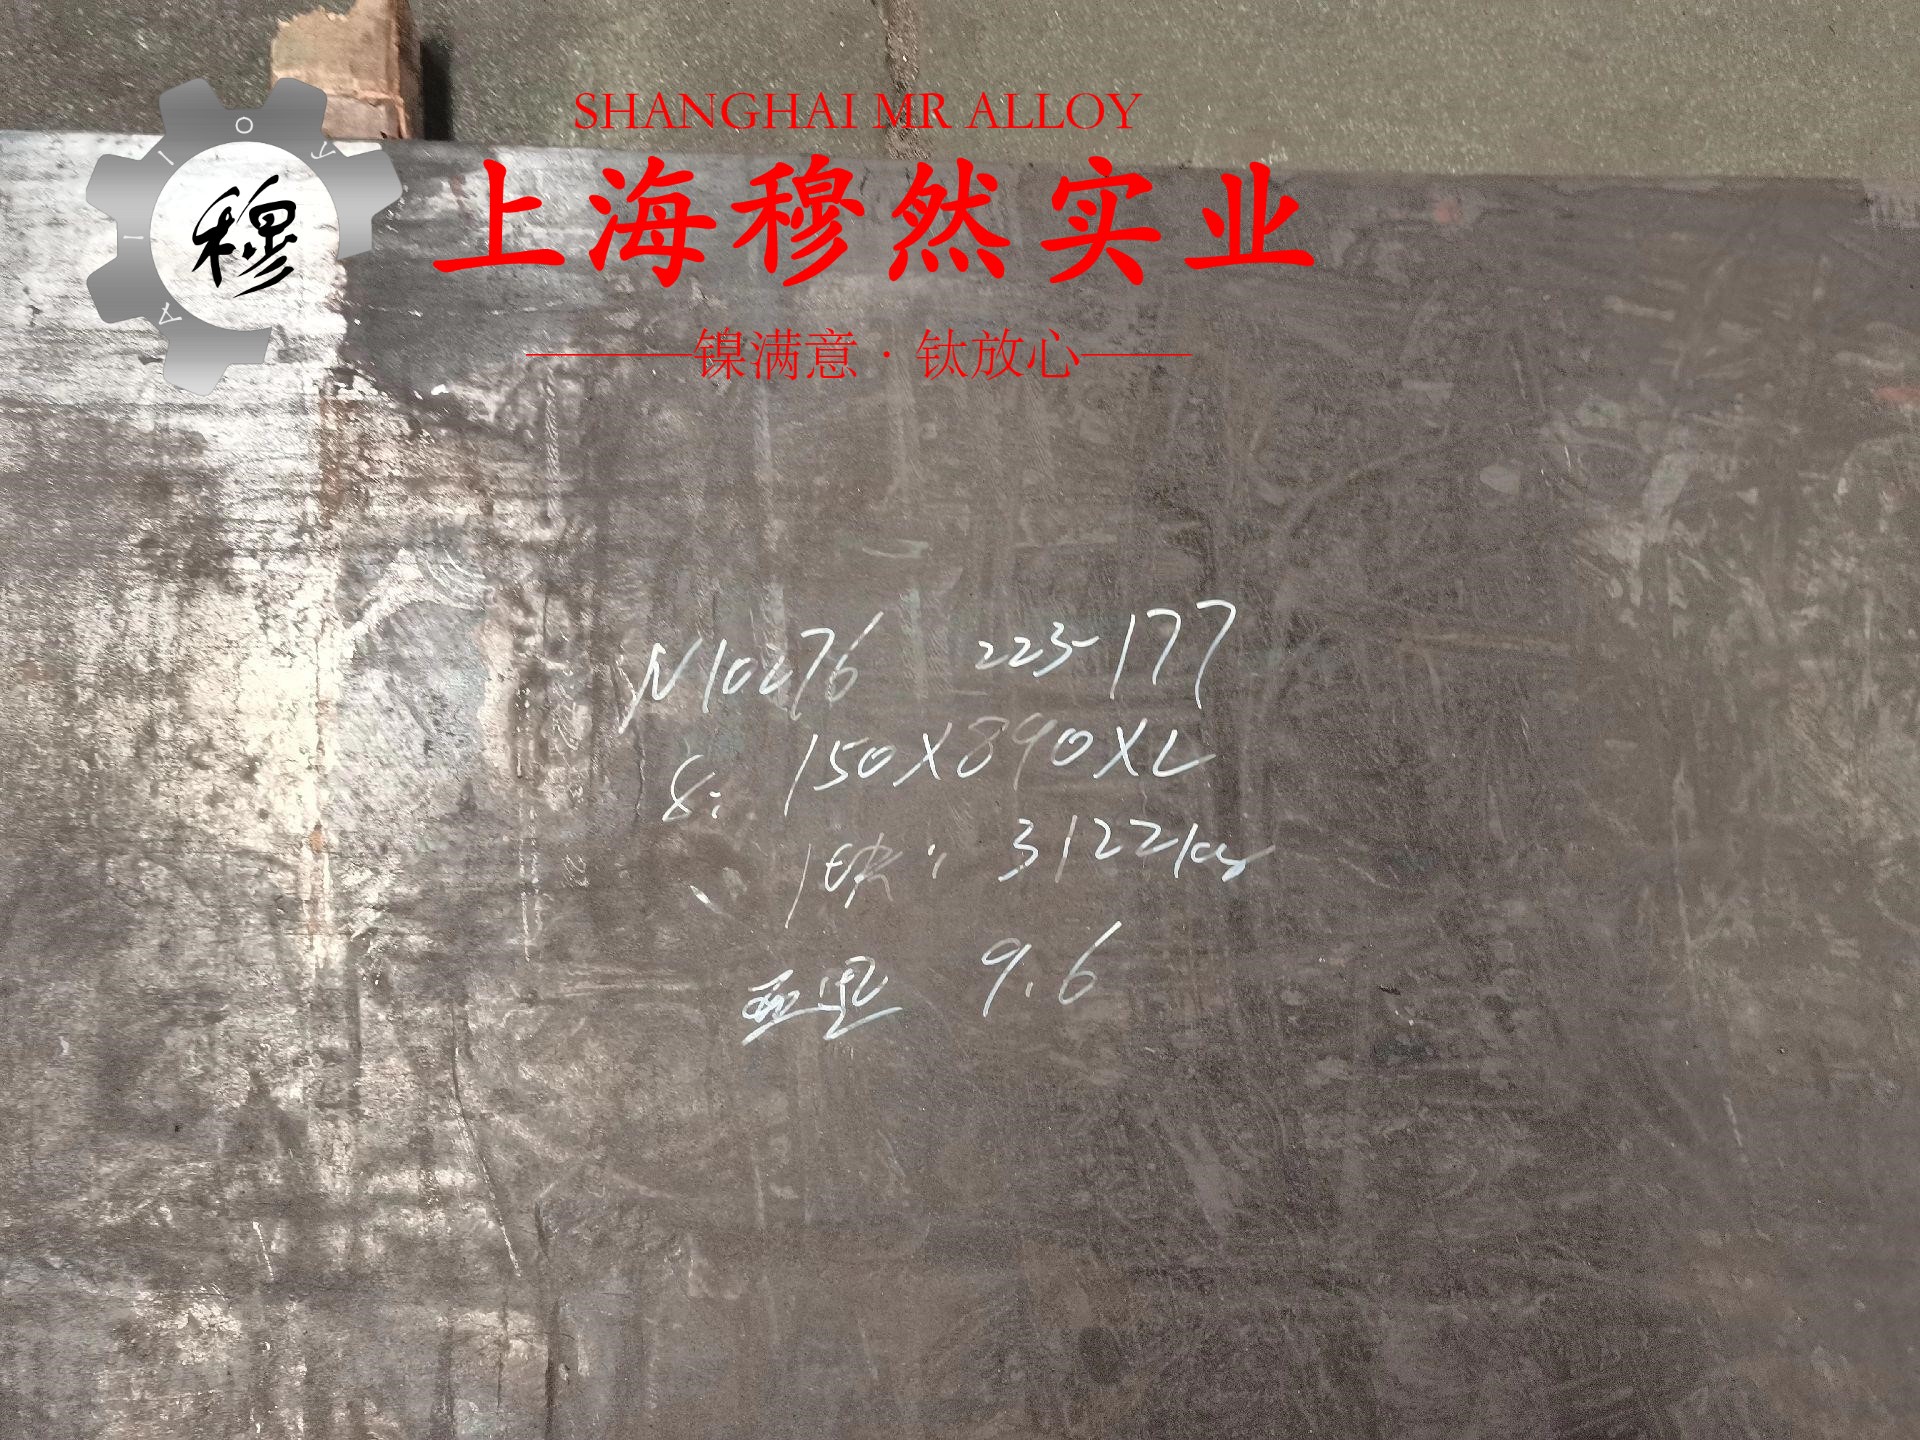 SHANGHAI MR ALLOY
上海穆然实业
镍满意·钛放心
穆
ALLOY
N10276 223-177
8: 150X890XL
1块: 3122kg
9.6